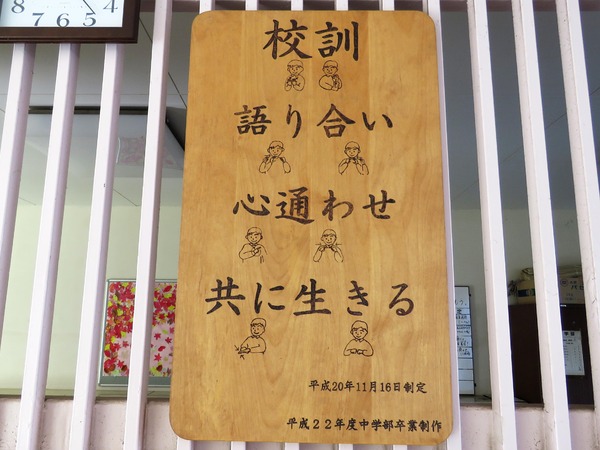 8 7 6 5 4
校訓
語り合い
心通わせ
共に生きる
平成20年11月16日制定
平成22年度中学部卒業制作